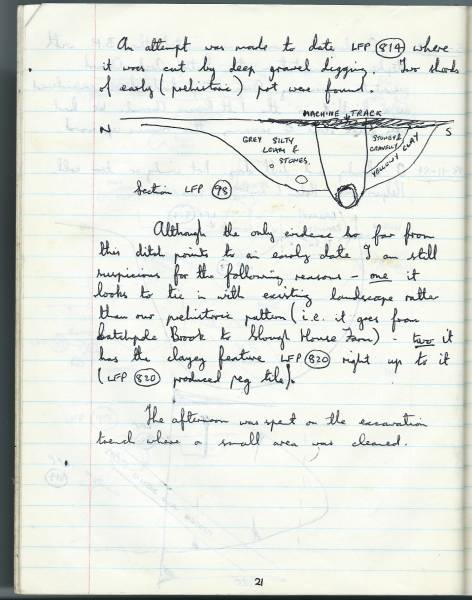 An attempt was made to date LFP 814 where
it was cut by deep gravel digging. Two sherds
of early (prehistoric) pot were found.
MACHINE TRACK
N
S
GREY SILTY
LOAM &
STONES.
STONES &
GRAVELLY
YELLOWY CLAY
Section LFP 98
Although the only evidence so far from
this ditch points to an early date I am still
suspicious for the following reasons - one it
looks to tie in with existing landscape rather
than our prehistoric pattern (i.e. it goes from
Brook to Slough House Farm) - two it
has the clayey feature LFP 820 right up to it
(LFP 820 produced peg tile).
The afternoon was spent on the excavation
trend where a small area was cleaned.
21